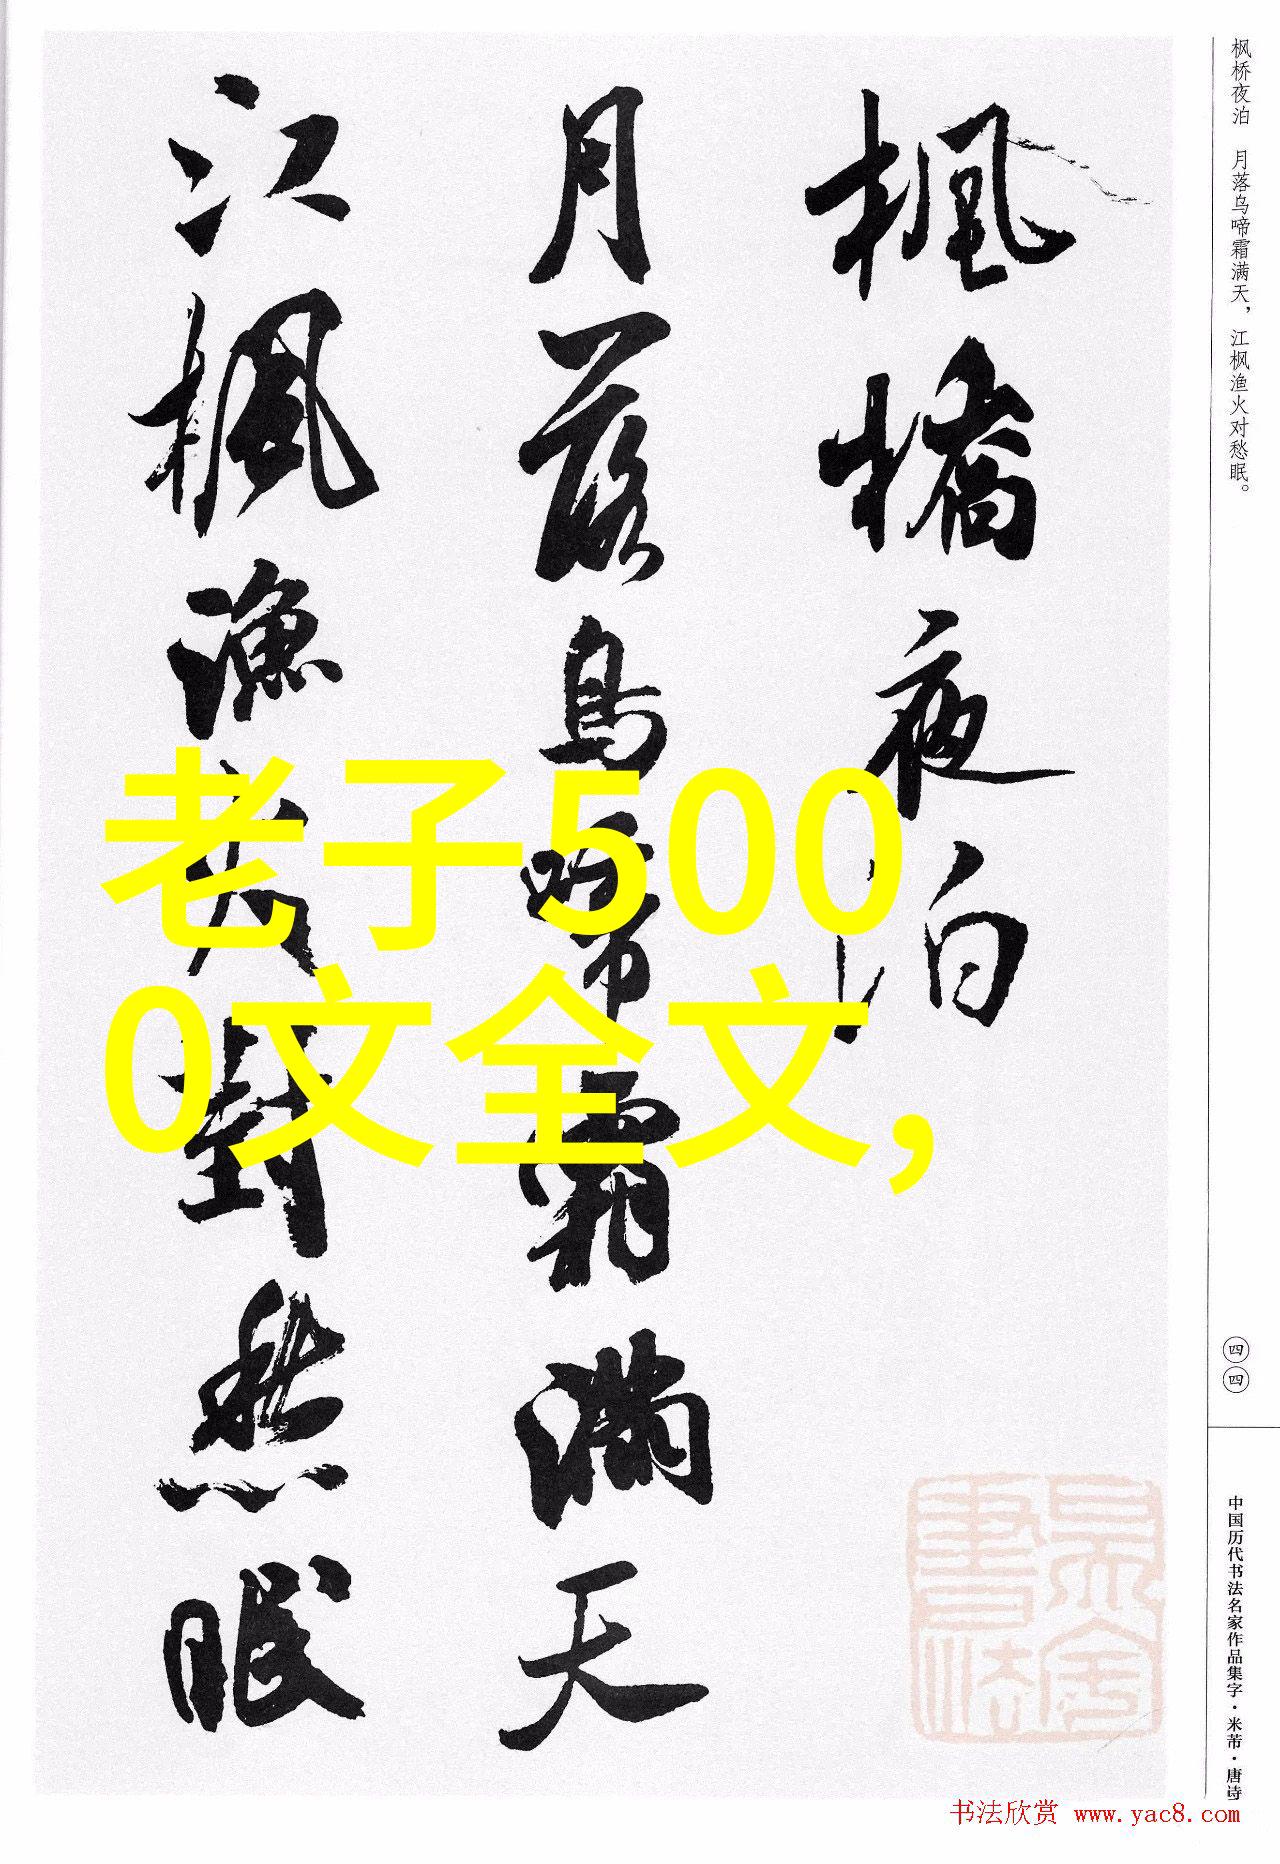 枫桥夜泊　月落乌啼霜满天，江枫渔火对愁眠。
楓橋夜泊
月落烏啼霜滿天
江楓漁火對愁眠
老子500
0文全文,
四四
中国历代书法名家作品集字·米芾·唐诗
书法欣赏 www.yac8.com